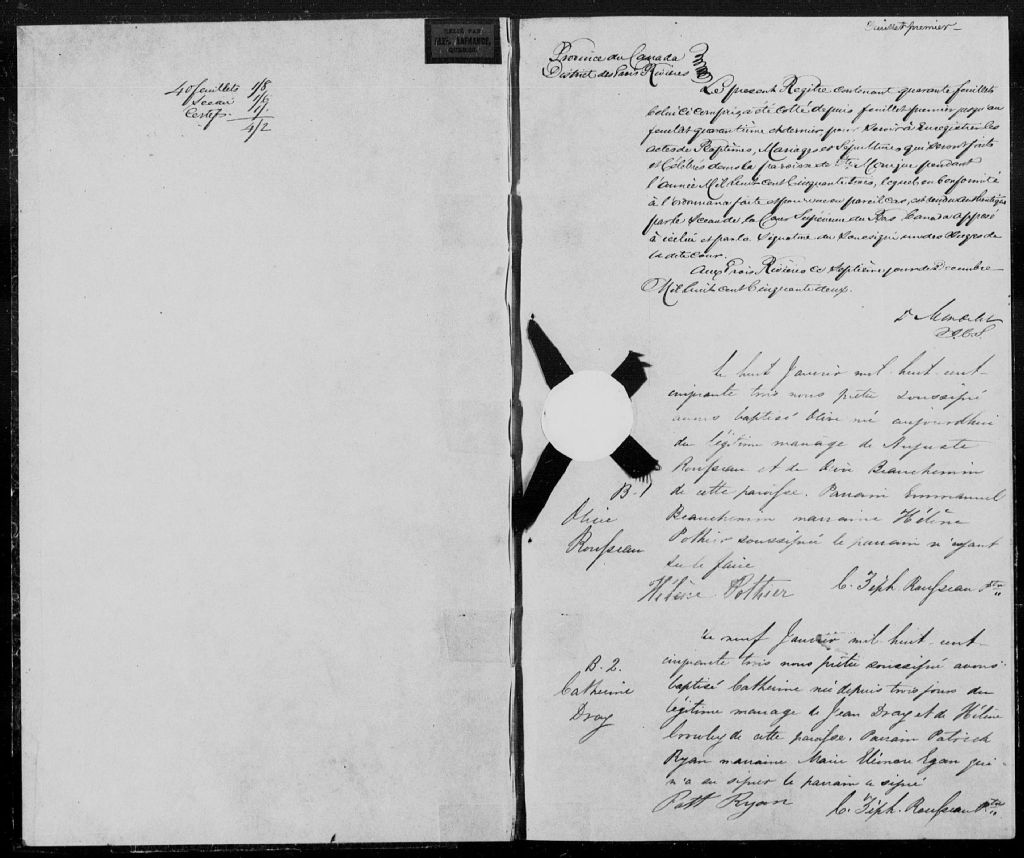 RELIÉ PAR
LAFRANCE,
QUEBEC.
40 feuillets 1/8
Sceau 1/6
Certif. 1/.
4/2
feuillet premier
Province du Canada
District des Trois Rivières
Le présent Régître contenant quarante feuillets
celui ci compris a été cotté depuis feuillet premier jusqu'au
feuillet quarantième et dernier pour servir à Enregistrer les
actes de Baptêmes, Mariages et Sépultures qui seront faits
et Célébrés dans la paroisse de Ste Monique pendant
l'année Mil huit cent Cinquante trois, lequel en conformité
à l'ordonnance faite et pourvue en pareil cas, est rendu authentique
par le Sceau de la Cour Supérieure du Bas Canada apposé
à icelui et par la Signature du Soussigné un des Juges de
la dite Cour.
Aux Trois Rivières ce Septième jour de Décembre
Mil huit cent Cinquante deux.
D Mondelet
J.C.S.
B. 1
Olive
Rousseau
Le huit Janvier mil huit cent
cinquante trois nous prêtre soussigné
avons baptisé Olive née aujourdhui
du légitime mariage de Auguste
Rousseau et de Beauchemin
de cette paroisse. Parrain Emmanuel
Beauchemin marraine Hélène
Pothier soussignée le parrain n'ayant
su le faire
Hélène Pothier C. Zéph. Rousseau Ptre
B. 2.
Catherine
Dray
Le neuf Janvier mil huit cent
cinquante trois nous prêtre soussigné avons
baptisé Catherine née depuis trois jours du
légitime mariage de Jean Dray et de Hélène
Crowley de cette paroisse. Parrain Patrick
Ryan marraine Marie Eléonore Egan qui
n'a su signer le parrain a signé
Patt Ryan C. Zéph. Rousseau Ptre